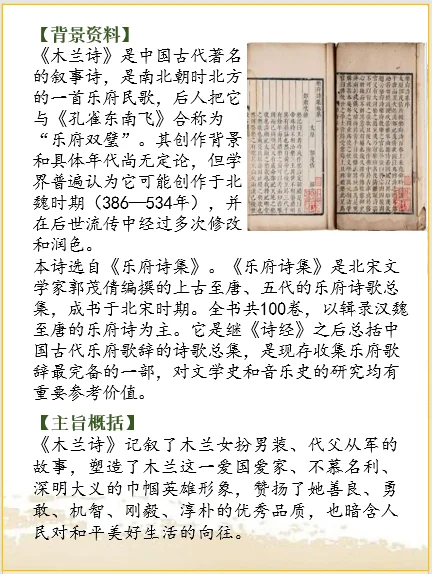 【背景资料】
《木兰诗》是中国古代著名
的叙事诗，是南北朝时北方
的一首乐府民歌，后人把它
与《孔雀东南飞》合称为
“乐府双璧”。其创作背景
和具体年代尚无定论，但学
界普遍认为它可能创作于北
魏时期（386—534年），并
在后世流传中经过多次修改
和润色。
本诗选自《乐府诗集》。《乐府诗集》是北宋文
学家郭茂倩编撰的上古至唐、五代的乐府诗歌总
集，成书于北宋时期。全书共100卷，以辑录汉魏
至唐的乐府诗为主。它是继《诗经》之后总括中
国古代乐府歌辞的诗歌总集，是现存收集乐府歌
辞最完备的一部，对文学史和音乐史的研究均有
重要参考价值。
【主旨概括】
《木兰诗》记叙了木兰女扮男装、代父从军的
故事，塑造了木兰这一爱国爱家、不慕名利、
深明大义的巾帼英雄形象，赞扬了她善良、勇
敢、机智、刚毅、淳朴的优秀品质，也暗含人
民对和平美好生活的向往。